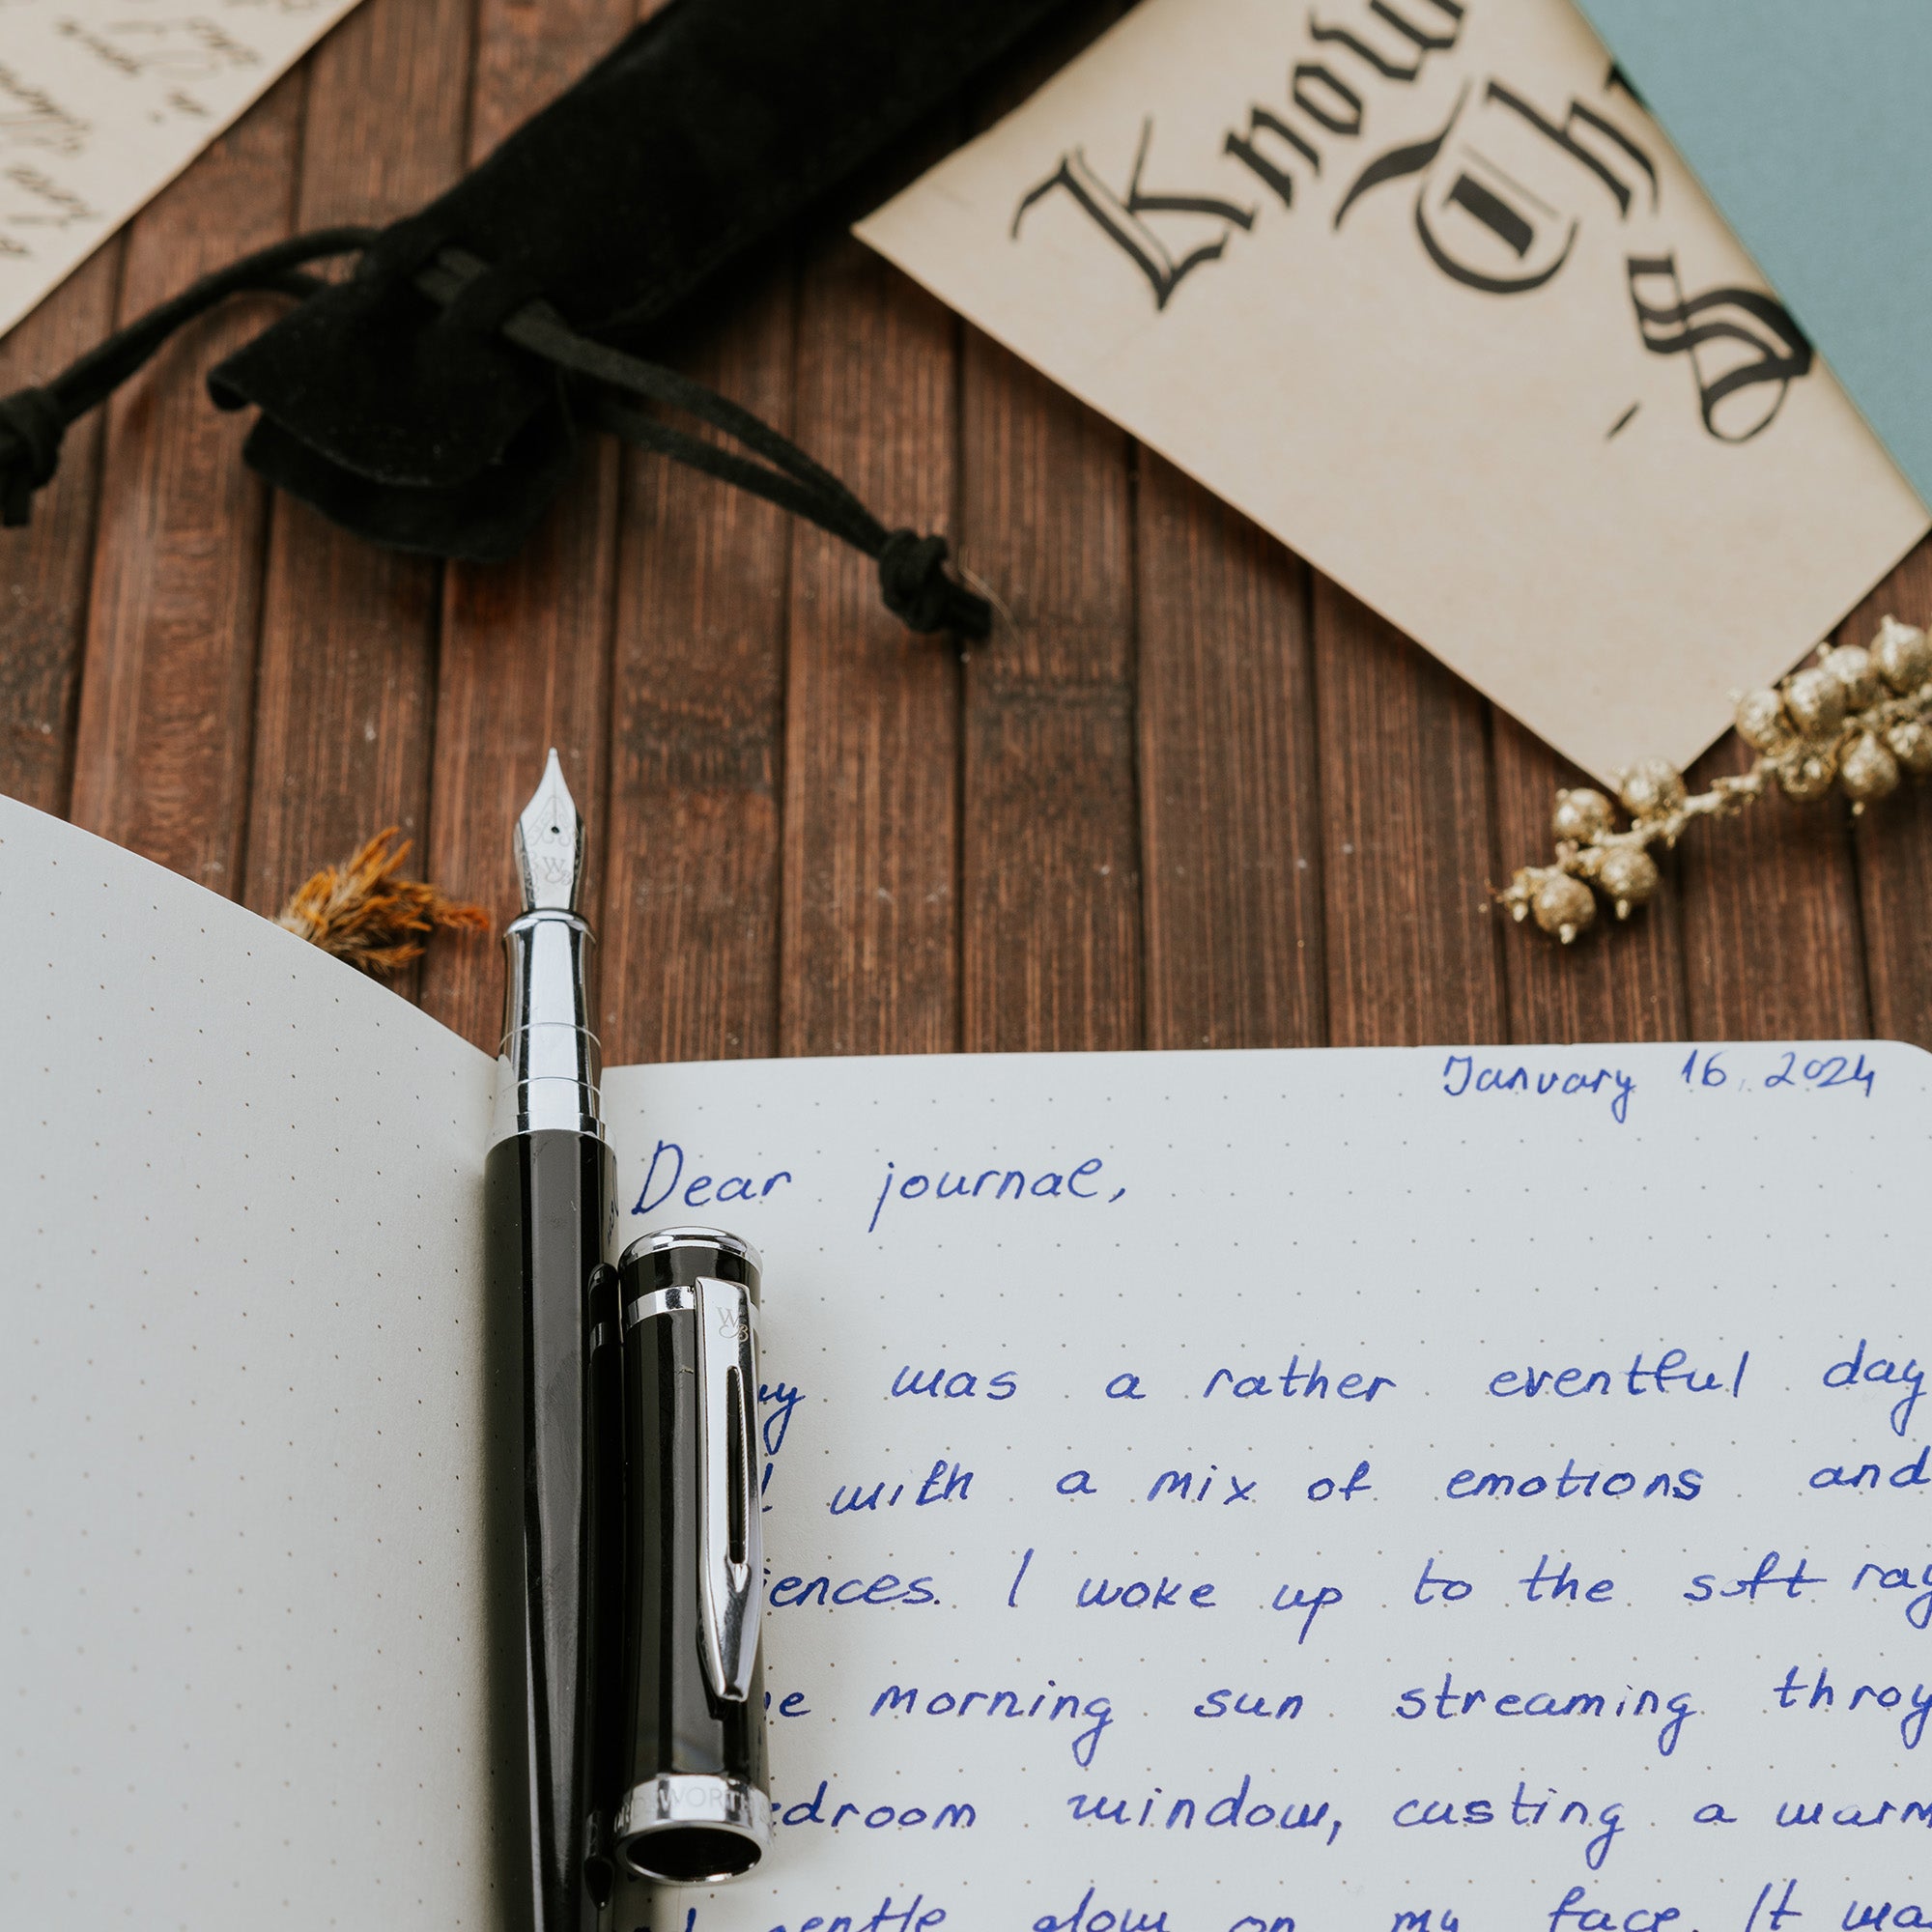 Know
Thy
S
January 16, 2024
Dear journal,
was a rather eventful day
with a mix of emotions and
iences. I woke up to the soft ray
morning sun streaming throu
edroom window, casting a warm
gentle glow on my face. It wa
W
WB
WORTH